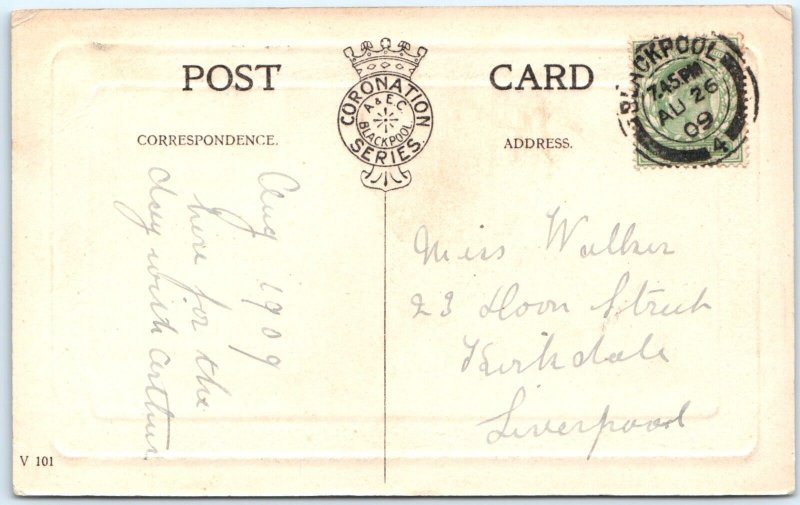 POST CARD
CORONATION SERIES.
A & E.C. BLACKPOOL.
CORRESPONDENCE.
ADDRESS.
BLACKPOOL
7.45 PM
AU 26
09
4
Aug 1909
here for the
day with Arthur
Miss Walker
23 Doon Street
Kirkdale
Liverpool
V 101